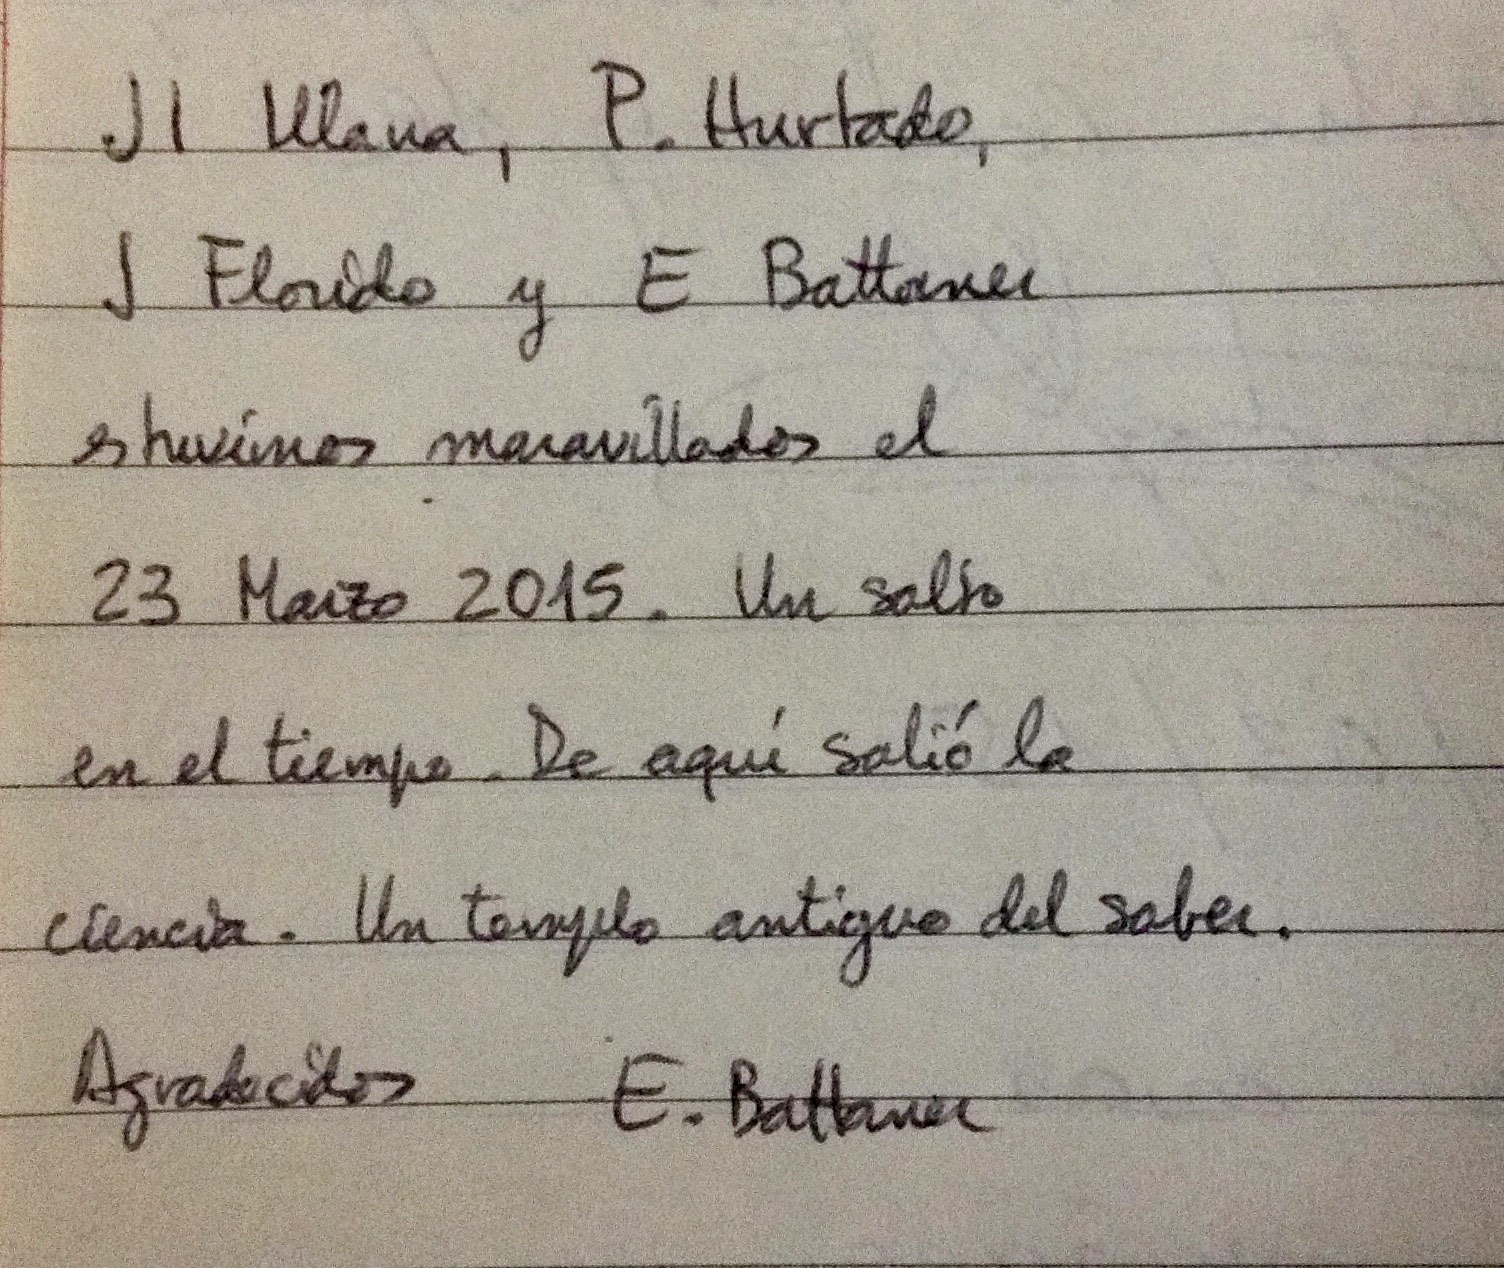 JI Illana, P. Hurtado,
J Florido y E Battaner
estuvimos maravillados el
23 Marzo 2015. Un salto
en el tiempo. De aquí salió la
ciencia. Un templo antiguo del saber.
Agradecidos E. Battaner